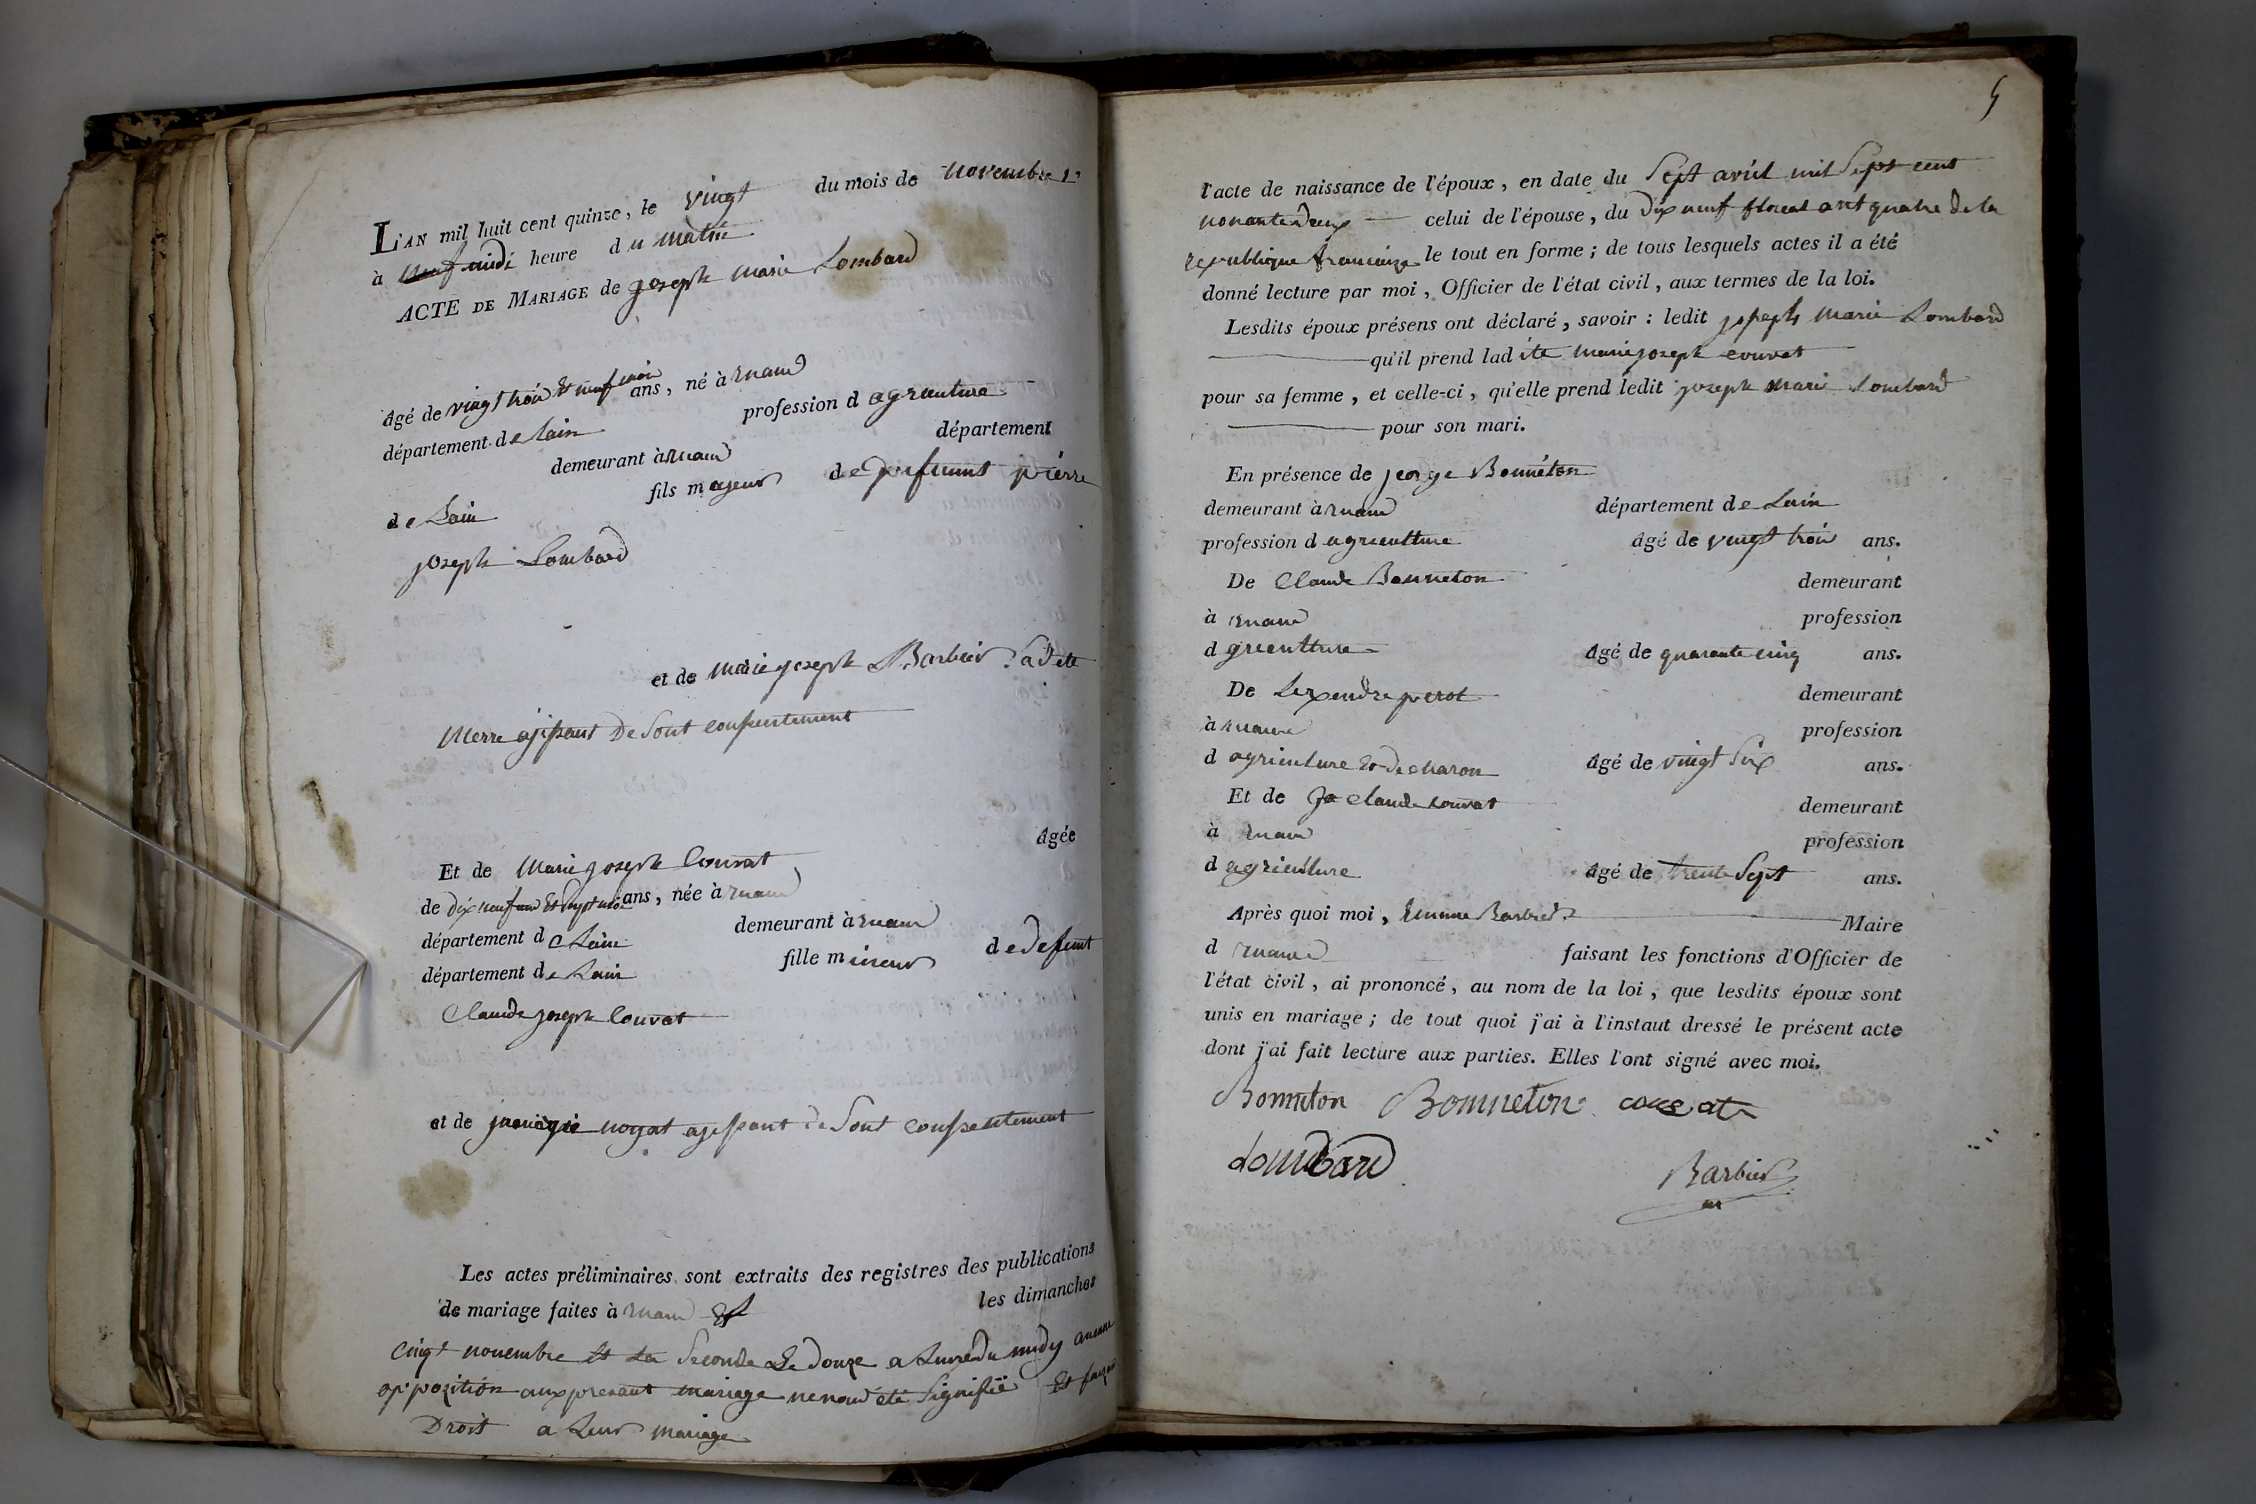 L'AN mil huit cent quinze, le vingt du mois de novembre
à neuf midi heure du matin
ACTE DE MARIAGE de joseph marie Lombard
Agé de vingt trois et neuf mois ans, né à ruaud
département de lain profession d agriculture
demeurant à ruaud département
de Lain fils majeur de defunt pierre
joseph Lombard
et de marie joseph Barbier sadite
merre ajissant De sont consentement
Et de Marie joseph Couvat Agée
de dix neuf ans et sept mois ans, née à ruaud
département de Lain demeurant à ruaud
département de Lain fille mineur de defunt
Claude joseph Couvat
et de noyat ajissant de sont consentement
Les actes préliminaires sont extraits des registres des publications
de mariage faites à ruaud les dimanches
cinqt novembre et la seconde Le douze a Lheure Du midy aucune
oppozition aux prezant mariage ne nous été signifié Et
Droit a Leur mariage
5
l'acte de naissance de l'époux, en date du sept avril mil sept cent
nonante deux celui de l'épouse, du dix neuf floreal ant quatre de la
republique francaize le tout en forme; de tous lesquels actes il a été
donné lecture par moi, Officier de l'état civil, aux termes de la loi.
Lesdits époux présens ont déclaré, savoir: ledit joseph Marie Lombard
qu'il prend ladite marie joseph couvat
pour sa femme, et celle-ci, qu'elle prend ledit joseph marie Lombard
pour son mari.
En présence de jeorge Bonnéton
demeurant à ruaud département de Lain
profession d agriculture Agé de vingt trois ans.
De Claude Bonneton demeurant
à ruaud profession
d griculture Agé de quarante cinq ans.
De Lexandre perot demeurant
à ruaud profession
d agriculture et de charon Agé de vingt six ans.
Et de Claude couvat demeurant
à ruaud profession
d agriculture Agé de trente sept ans.
Après quoi moi, Barbier Maire
d ruaud faisant les fonctions d'Officier de
l'état civil, ai prononcé, au nom de la loi, que lesdits époux sont
unis en mariage; de tout quoi j'ai à l'instaut dressé le présent acte
dont j'ai fait lecture aux parties. Elles l'ont signé avec moi.
Bonneton Bonneton couvat
Lombard
Barbier